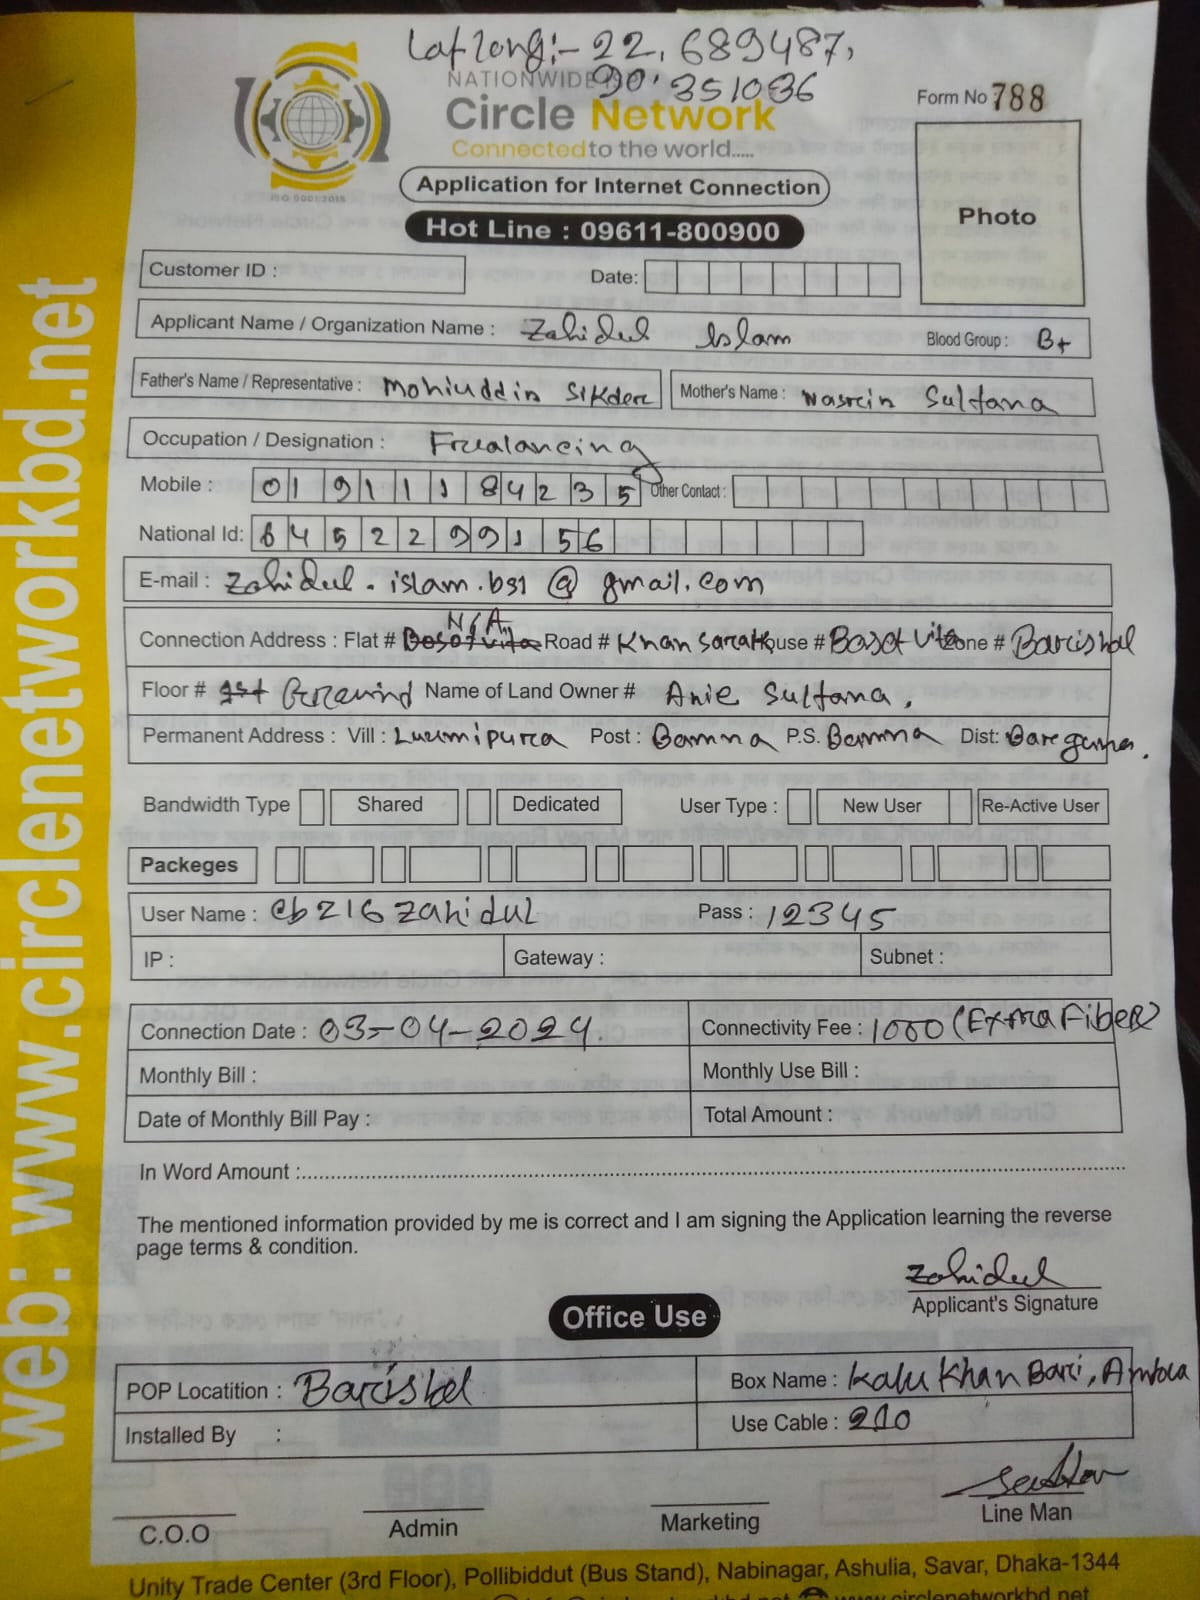 Lat long:- 22.689487,
90.351036
NATIONWIDE
Circle Network
Connected to the world.....
ISO 9001:2015
Form No 788
Photo
Application for Internet Connection
Hot Line : 09611-800900
Customer ID : Date:
Applicant Name / Organization Name : Zahidul Islam Blood Group : B+
Father's Name / Representative : Mohiuddin Sikder Mother's Name : Nasrin Sultana
Occupation / Designation : Frealancing
Mobile : 01911184235 Other Contact :
National Id: 6452299156
E-mail : zahidul.islam.bs1@gmail.com
N/A
Connection Address : Flat # Road # Khan Sarak House # Basot Vita Zone # Barishal
Floor # Ground Name of Land Owner # Anie Sultana.
Permanent Address : Vill : Luxmipura Post : Bamna P.S. Bamna Dist: Baraguna.
Bandwidth Type Shared Dedicated User Type : New User Re-Active User
Packeges
User Name : cb216zahidul Pass : 12345
IP : Gateway : Subnet :
Connection Date : 03-04-2024. Connectivity Fee : 1000 (Extra Fiber)
Monthly Bill : Monthly Use Bill :
Date of Monthly Bill Pay : Total Amount :
In Word Amount :
The mentioned information provided by me is correct and I am signing the Application learning the reverse
page terms & condition.
Zahidul
Applicant's Signature
Office Use
POP Locatition : Barishal Box Name : Kalu Khan Bari, Amtola
Installed By : Use Cable : 210
C.O.O Admin Marketing Line Man
Unity Trade Center (3rd Floor), Pollibiddut (Bus Stand), Nabinagar, Ashulia, Savar, Dhaka-1344
www.circlenetworkbd.net
web: www.circlenetworkbd.net